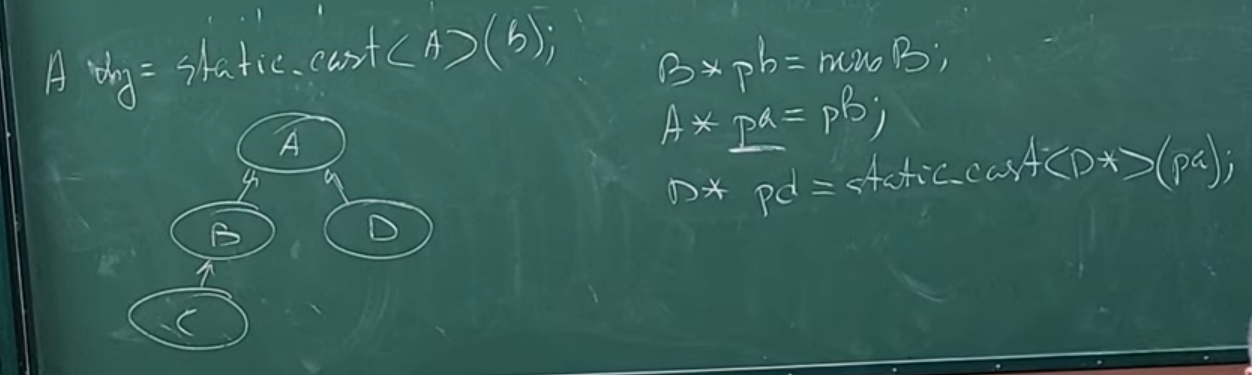 A obj = static_cast<A>(b);
A
B
D
C
B* pb = new B;
A* pa = pb;
D* pd = static_cast<D*>(pa);